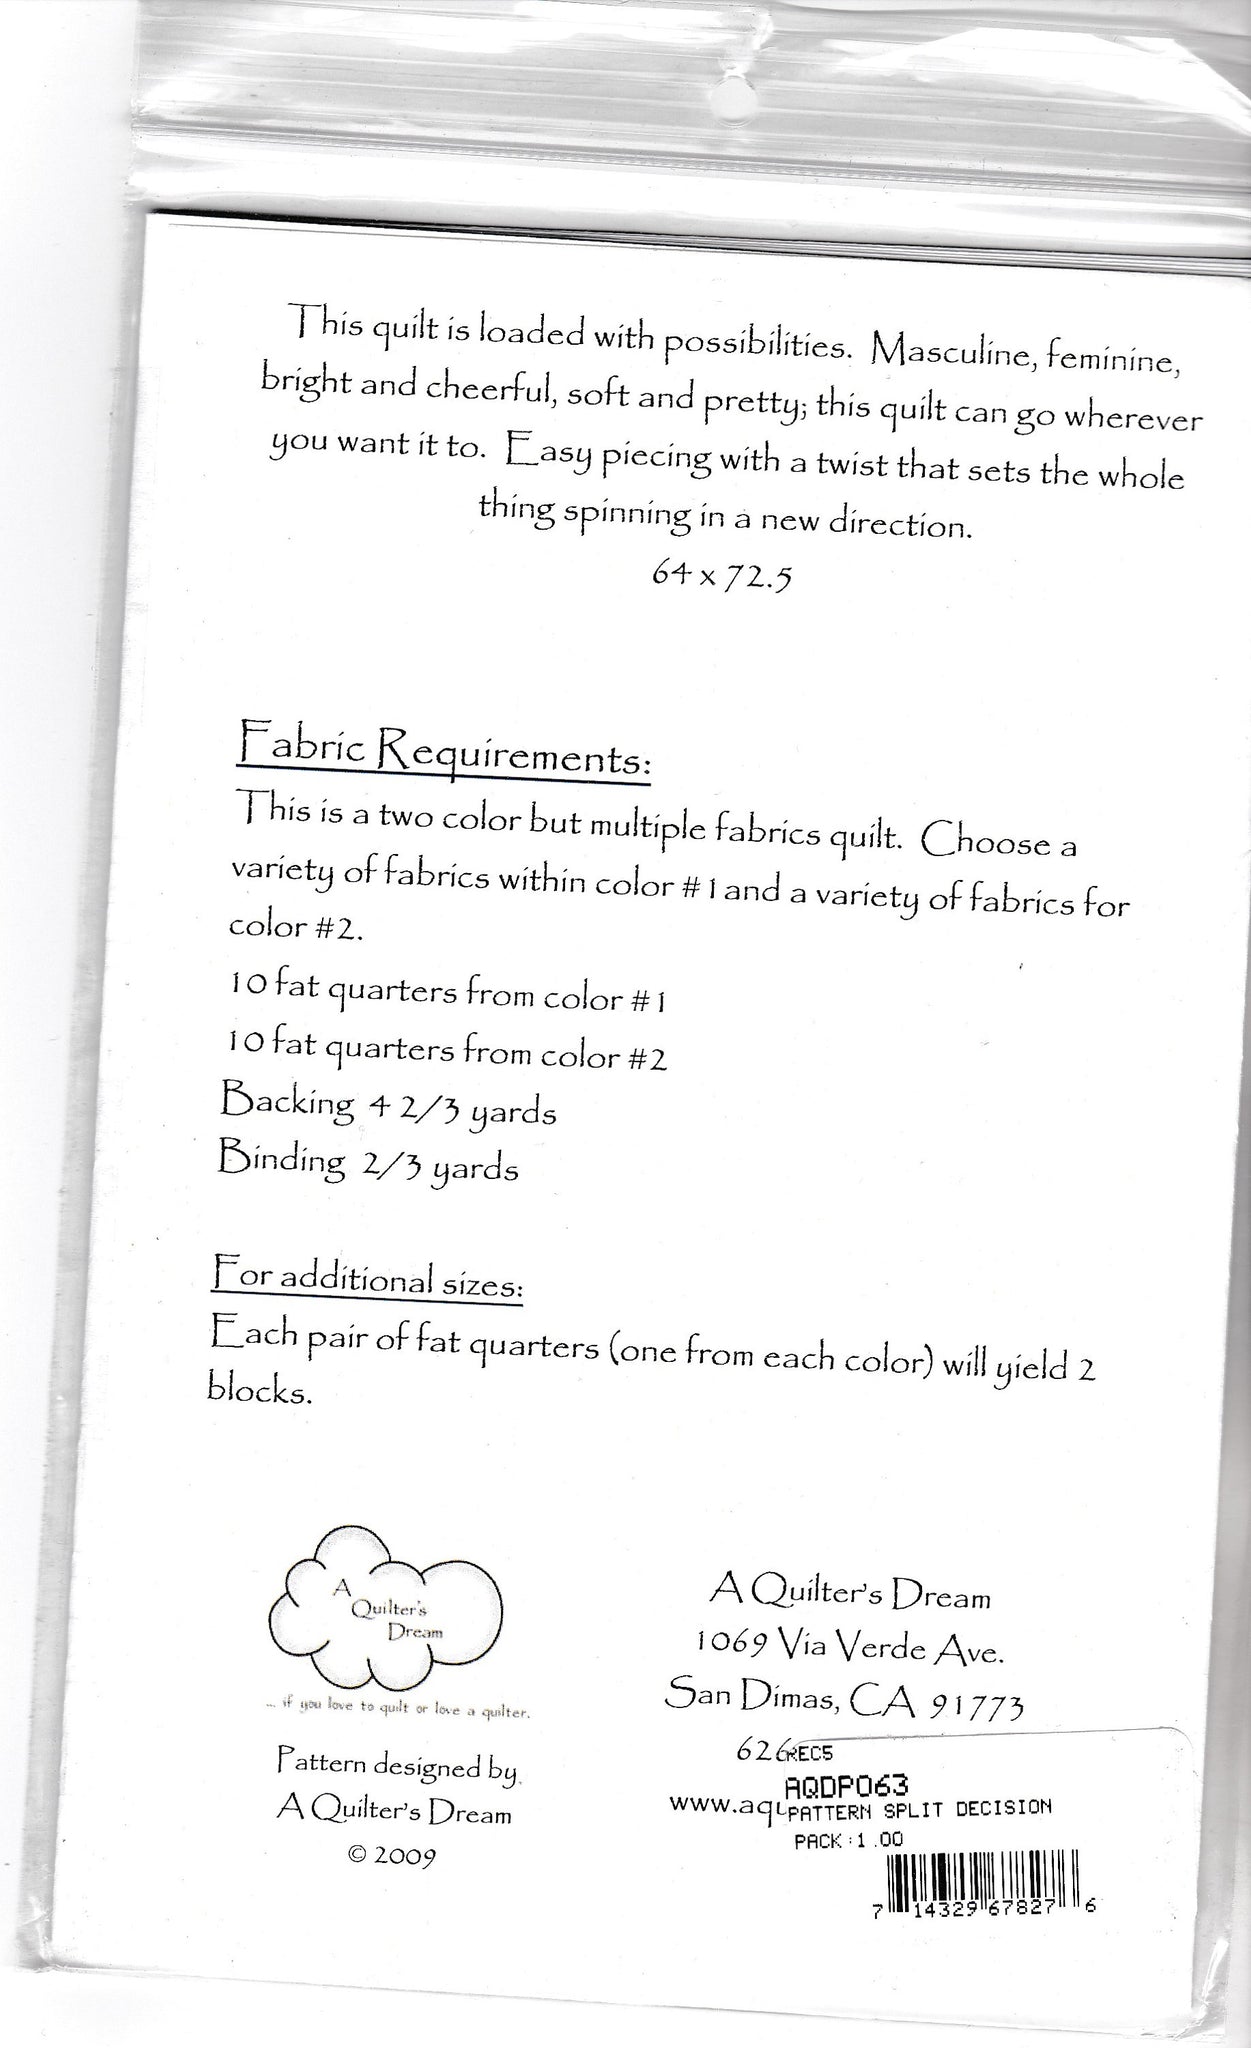 This quilt is loaded with possibilities. Masculine, feminine,
bright and cheerful, soft and pretty; this quilt can go wherever
you want it to. Easy piecing with a twist that sets the whole
thing spinning in a new direction.
64 x 72.5
Fabric Requirements:
This is a two color but multiple fabrics quilt. Choose a
variety of fabrics within color #1 and a variety of fabrics for
color #2.
10 fat quarters from color #1
10 fat quarters from color #2
Backing 4 2/3 yards
Binding 2/3 yards
For additional sizes:
Each pair of fat quarters (one from each color) will yield 2
blocks.
A
Quilter's
Dream
... if you love to quilt or love a quilter.
Pattern designed by
A Quilter's Dream
© 2009
A Quilter's Dream
1069 Via Verde Ave.
San Dimas, CA 91773
626
www.aq
REC5
AQDP063
PATTERN SPLIT DECISION
PACK:1.00
7 14329 67827 6